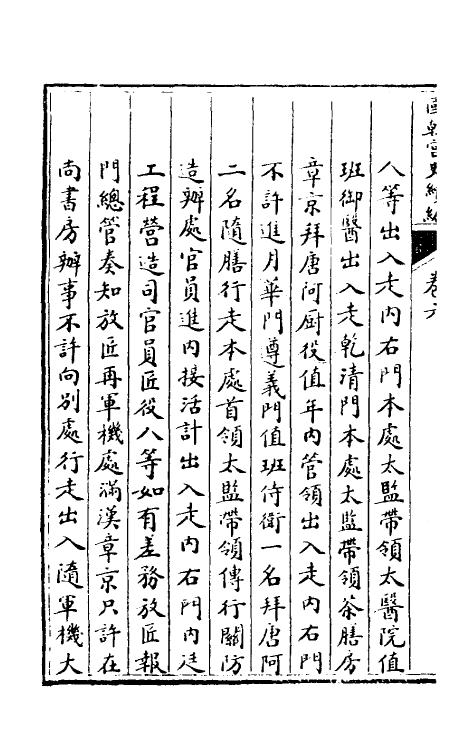 人等出入走內右門本處太監帶領太醫院值
班御醫出入走乾清門本處太監帶領茶膳房
章京拜唐阿厨役值年內管領出入走內右門
不許進月華門遵義門值班侍衛一名拜唐阿
二名隨膳行走本處首領太監帶領傳行關防
造辦處官員進內接活計出入走內右門內廷
工程營造司官員匠役人等如有差務放匠報
門總管奏知放匠再軍機處滿漢章京只許在
尚書房辦事不許向別處行走出入隨軍機大
卷六